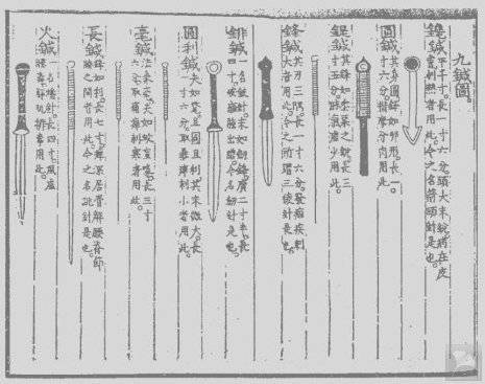 九鍼圖
鑱鍼平半寸長一寸六分頭大末銳病在皮
膚刺熱者用此今之名箭頭針是也
圓鍼其身圓鋒如卵形長一
寸六分揩摩分肉用此
鍉鍼其鋒如黍粟之銳長三
寸五分脉氣虛少用此
鋒鍼其刃三隅長一寸六分發痼疾刺
大者用此今之所謂三稜針是也
鈹鍼末如劍鋒廣二寸半長
四寸破癰腫出膿今名鈹針是也
圓利鍼尖如氂且圓且利其末微大長
一寸六分取暴痺刺小者用此
毫鍼法象毫尖如蚊虻喙長三寸
六分取痛痺刺寒者用此
長鍼鋒如利長七寸痺深居骨解腰脊節
腠之間者用此今之名跳針是也
火鍼一名燔針長四寸風虛
腫毒解肌排毒用此